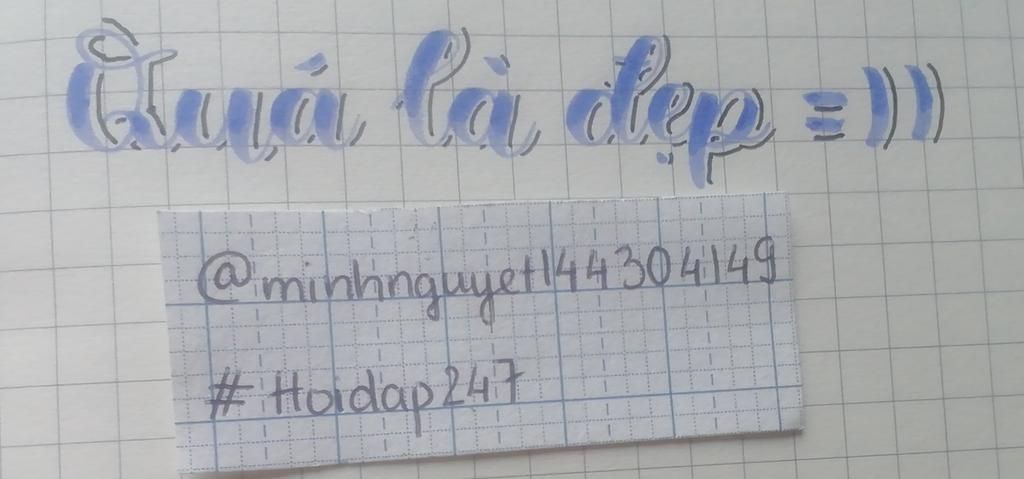 Quá là đẹp =)))
@minhnguyet144304149
# Hoidap247